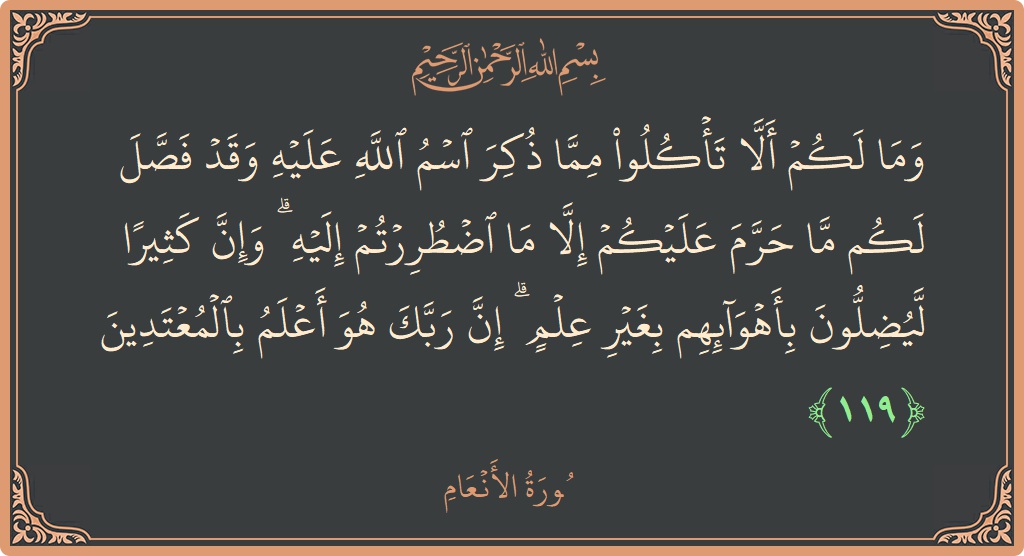 بِسْمِ اللَّهِ الرَّحْمَٰنِ الرَّحِيمِ
وَمَا لَكُمۡ أَلَّا تَأۡكُلُواْ مِمَّا ذُكِرَ ٱسۡمُ ٱللَّهِ عَلَيۡهِ وَقَدۡ فَصَّلَ
لَكُم مَّا حَرَّمَ عَلَيۡكُمۡ إِلَّا مَا ٱضۡطُرِرۡتُمۡ إِلَيۡهِۗ وَإِنَّ كَثِيرًا
لَّيُضِلُّونَ بِأَهۡوَآئِهِم بِغَيۡرِ عِلۡمٍۚ إِنَّ رَبَّكَ هُوَ أَعۡلَمُ بِٱلۡمُعۡتَدِينَ
﴿١١٩﴾
سُورَةُ الأَنۡعَامِ